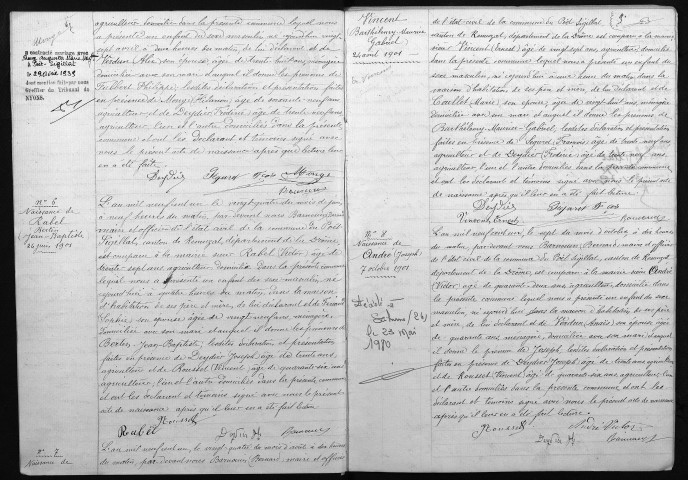 agriculteur domicilié dans la présente commune lequel nous
a présenté un enfant du sexe masculin né
sept avril à une heure du matin, du lui déclarant et de
Verdun son épouse âgée de trente huit ans, ménagère
domiciliée avec son mari et auquel il a donné les prénoms de
Filbert Philippe; lesdites déclaration et présentation
faites en présence de
agriculteur et de Deydier Fréderic âgé de trente neuf ans
agriculteur l'un et l'autre domiciliés dans la présente
commune et ont les déclarant et témoins signé avec
nous le présent acte de naissance après que lecture leur
en a été faite.
Deydier Pezard Monge
a contracté mariage avec
à Poët-Sigillat
le 29 1939
NYONS.
N° 6
Naissance de
Rabel
Berlin
Jean Baptiste
24 juin 1901
L'an neuf cent un le vingt quatre du mois de juin
à neuf heures du matin, par devant nous Barnouin Bernard
maire et officier de l'état civil de la commune du Poët
Sigillat, canton de Remuzat, département de la Drôme,
est comparu à la mairie sieur Rabel Victor âgé de
trente sept ans agriculteur domicilié dans la présente commune
lequel nous a présenté un enfant du sexe masculin, né
aujourd'hui à quatre heures du matin, dans la maison
d'habitation de ses père et mère, de lui déclarant et de
son épouse, âgée de vingt neuf ans, ménagère
domiciliée avec son mari et auquel il a donné les prénoms de
Berlin Jean Baptiste, lesdites déclaration et présentation
faites en présence de Deydier Joseph âgé de trente ans,
agriculteur et de Rousset Vincent, âgé de quarante six ans
agriculteur l'un et l'autre domiciliés dans la présente commune
et ont les déclarant et témoins signé avec nous le présent
acte de naissance après que lecture en a été faite.
N° 7
Naissance de
L'an neuf cent un, le vingt quatre du mois d'août à dix heures
du matin, par devant nous Barnouin Bernard, maire et officier
Vincent
Barthélemy Maurice
Gabriel
24 août 1901
de l'état civil de la commune du Poët Sigillat,
canton de Remuzat, département de la Drôme est comparu à la mairie
sieur Vincent (Ernest) âgé de vingt sept ans, agriculteur
domicilié dans la présente commune lequel nous a présenté un enfant du sexe
masculin, né aujourd'hui à une heure du matin dans la
maison d'habitation de ses père et mère, de lui déclarant et de
Caillet Marie son épouse, âgée de vingt huit ans, ménagère
domiciliée avec son mari et auquel il donne les prénoms de
Barthélemy Maurice Gabriel, lesdites déclaration et présentation
faites en présence de Pezard (François) âgé de trente neuf ans
agriculteur et de Deydier (Fréderic) âgé de trente neuf ans
agriculteur, l'un et l'autre domiciliés dans la présente
commune et ont les déclarant et témoins signé avec nous le présent acte
de naissance après qu'il leur en a été fait lecture.
Deydier Pezard
Vincent Ernest
N° 8
Naissance de
André (Joseph)
7 octobre 1901
Décédé à
le 23 Mai
1970
L'an neuf cent un, le sept du mois d'octobre, à dix heures
du matin, par devant nous Barnouin Bernard, maire et officier
de l'état civil de la commune du Poët Sigillat, canton de Remuzat
département de la Drôme, est comparu à la mairie sieur André
Victor, âgé de quarante deux ans agriculteur, domicilié dans
la présente commune lequel nous a présenté un enfant du sexe
masculin, né aujourd'hui dans la maison d'habitation de ses père
et mère de lui déclarant et de Verdun (Anaïs) son épouse âgée
de quarante ans ménagère, domiciliée avec son mari, et auquel
il donne le prénom de Joseph, lesdites déclaration et présentation
faites en présence de Deydier Joseph âgé de trente ans agriculteur
et de Rousset Vincent, âgé de quarante six ans agriculteur l'un
et l'autre domiciliés dans la présente commune et ont les
déclarant et témoins signé avec nous le présent acte de naissance
après qu'il leur en a été fait lecture.
André Victor